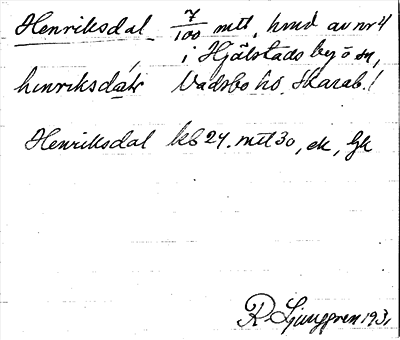 Henriksdal 7/100 mtl, hmd av nr 4
i Hjälstads by o sn,
hinriksdal Vadsbo hd, Skarab.l
Henriksdal kb 24. mtl 30, ek, Gk
R. Ljunggren 193